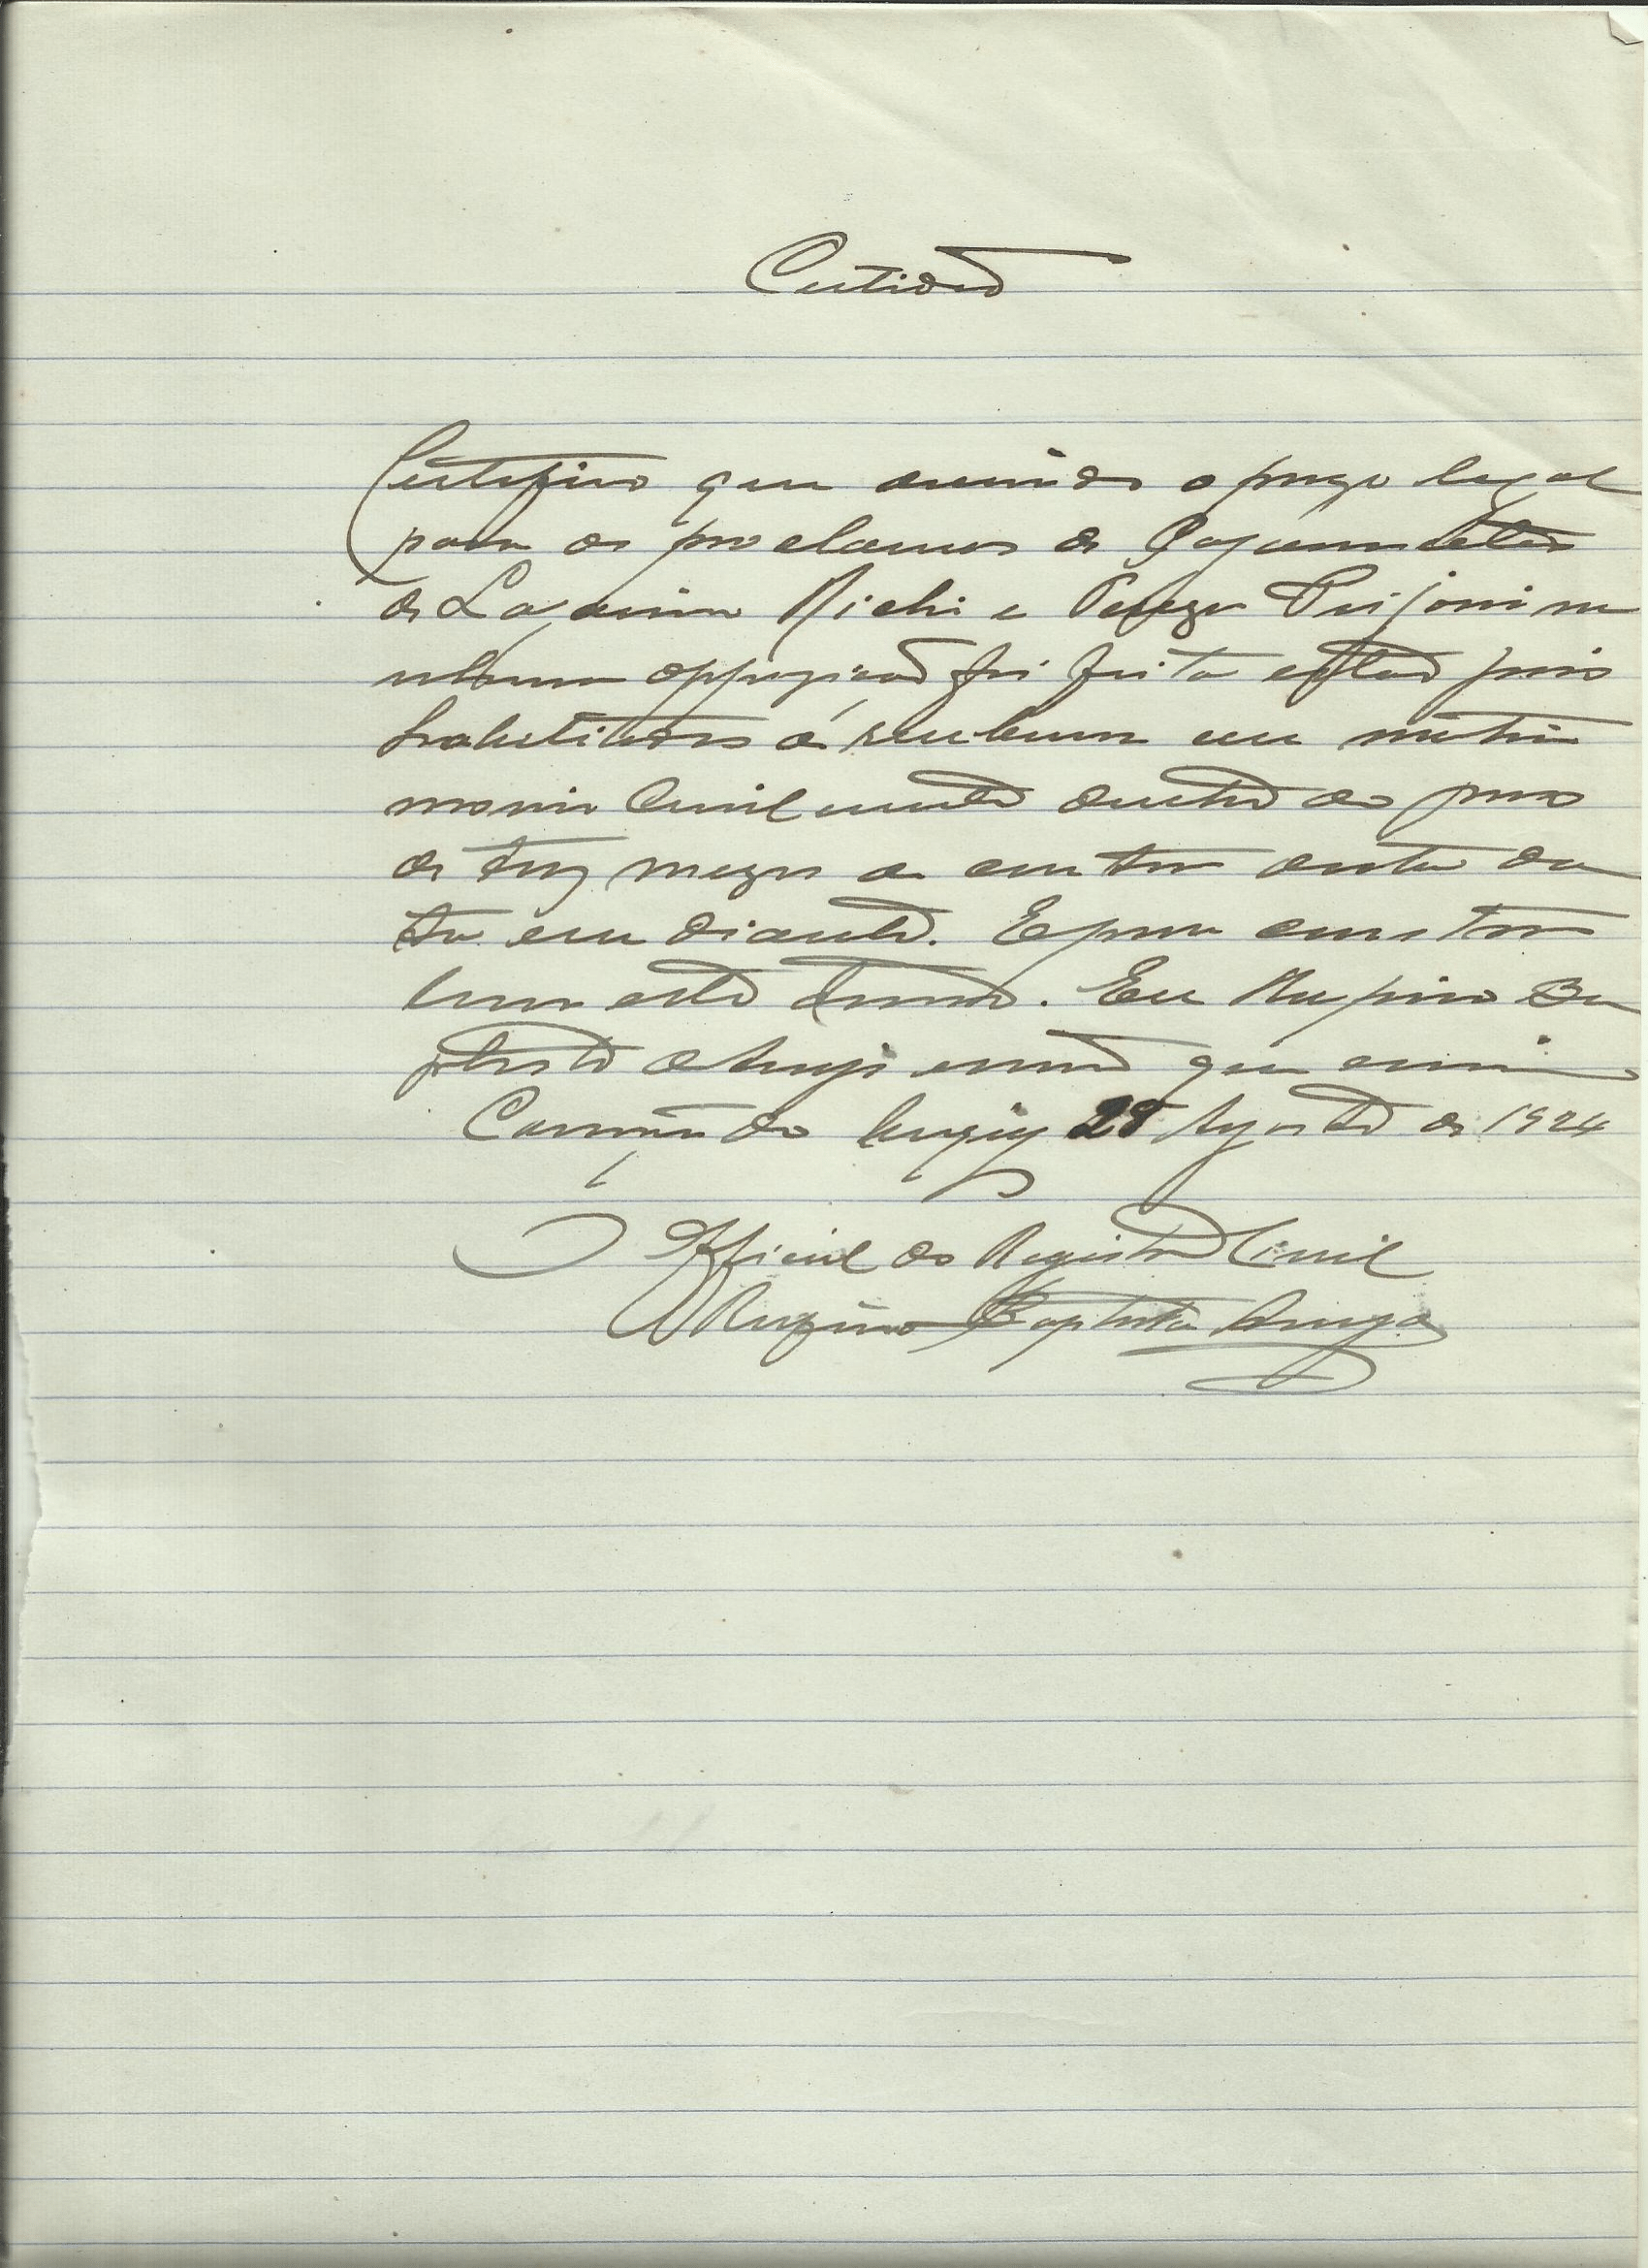 Certidão
Certifico que corrido o prazo legal
para os proclamas de Casamento
de Richi e
nhuma opposição foi feita estão pois
habilitados a receberem em matri
monio Civilmente dentro do praso
de trez mezes a contar desta da
ta em diante. E para constar
lavro este termo. Eu Rufino Ba
ptista escrivão que escrevi
28 Agosto de 1924
Official do Registro Civil
Rufino Baptista